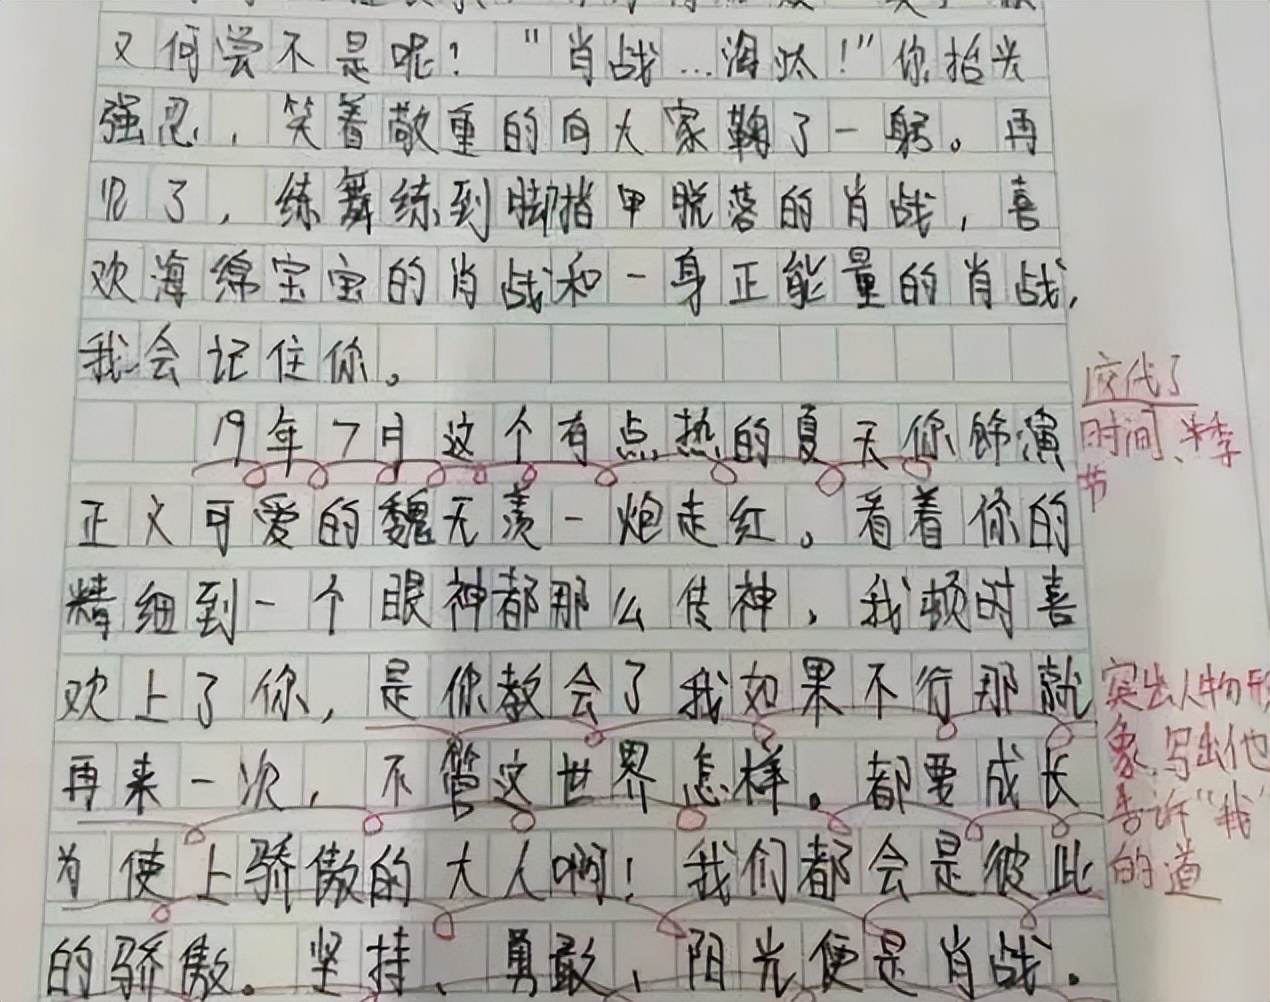 又何尝不是呢！"肖战…淘汰！"你抬头
强忍，笑着敬重的向大家鞠了一躬。再
见了，练舞练到脚指甲脱落的肖战，喜
欢海绵宝宝的肖战和一身正能量的肖战，
我会记住你。
19年7月这个有点热的夏天你饰演
正义可爱的魏无羡一炮走红。看着你的
精细到一个眼神都那么传神，我顿时喜
欢上了你，是你教会了我如果不行那就
再来一次，不管这世界怎样。都要成长
为使上骄傲的大人啊！我们都会是彼此
的骄傲。坚持、勇敢、阳光便是肖战。
交代了
时间、季
节
突出人物形
象，写出他
告诉"我"
的道